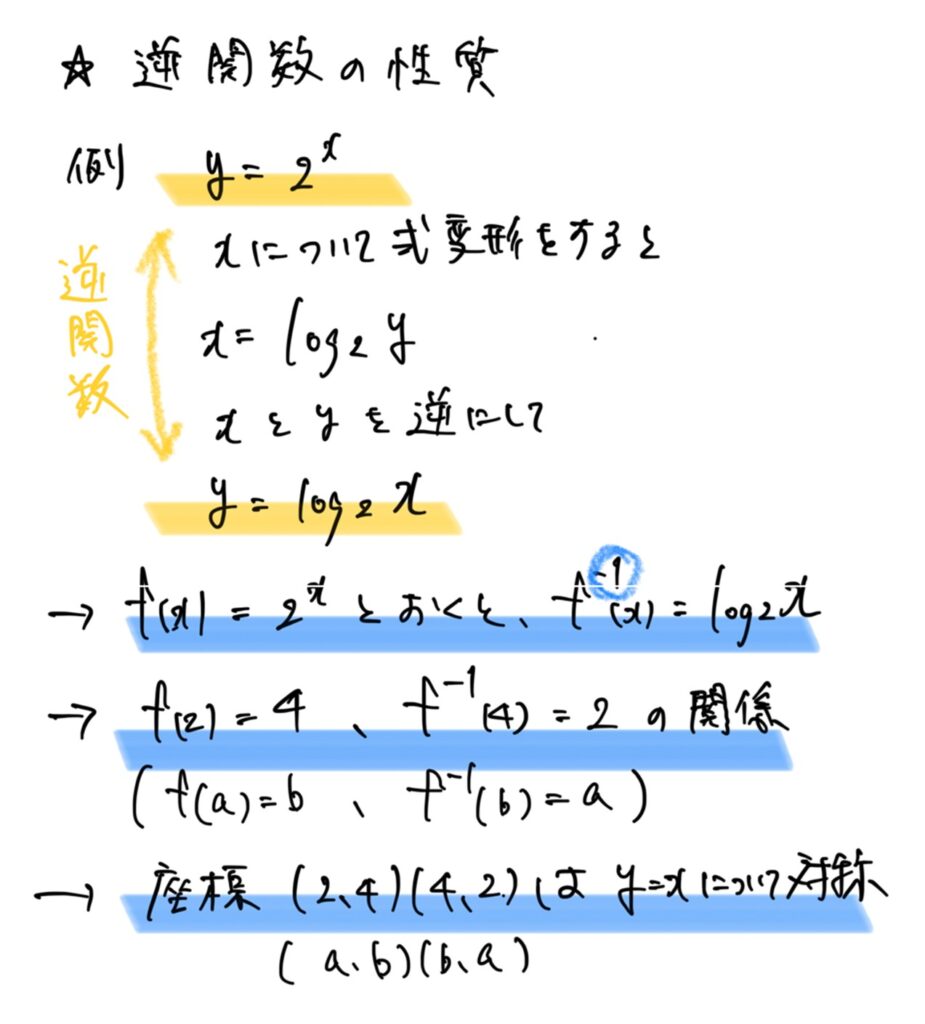 ☆ 逆関数の性質
例 y = 2^x
xについて式変形をすると
逆関数
x = log₂ y
xとyを逆にして
y = log₂ x
→ f(x) = 2^x とおくと、f⁻¹(x) = log₂x
→ f(2) = 4 、 f⁻¹(4) = 2 の関係
(f(a)=b 、 f⁻¹(b)=a)
→ 座標 (2、4)(4、2)は y=xについて対称
(a、b)(b、a)